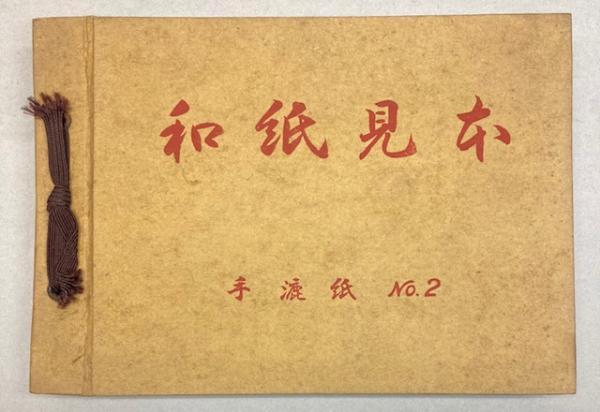 和紙見本
手漉紙 No.2